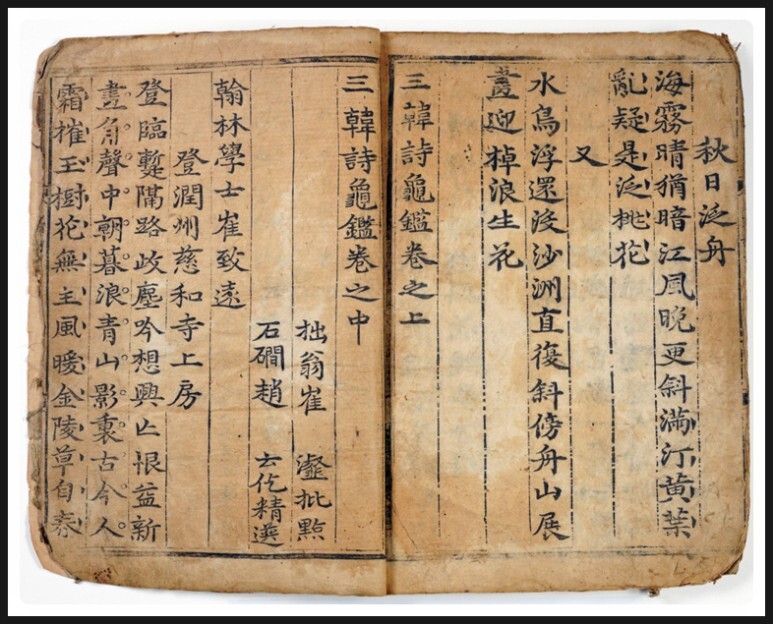 秋日泛舟
海霧晴猶暗江風晩更斜滿汀黃葉
亂疑是泛桃花
又
水鳥浮還沒沙洲直復斜傍舟山展
畫迎棹浪生花
三韓詩龜鑑卷之上
三韓詩龜鑑卷之中
拙翁崔 瀣批點
石磵趙 云仡精選
翰林學士崔致遠
登潤州慈和寺上房
登臨蹔隔路岐塵吟想興亡恨益新
畫角聲中朝暮浪青山影裏古今人
霜摧玉樹花無主風暖金陵草自春